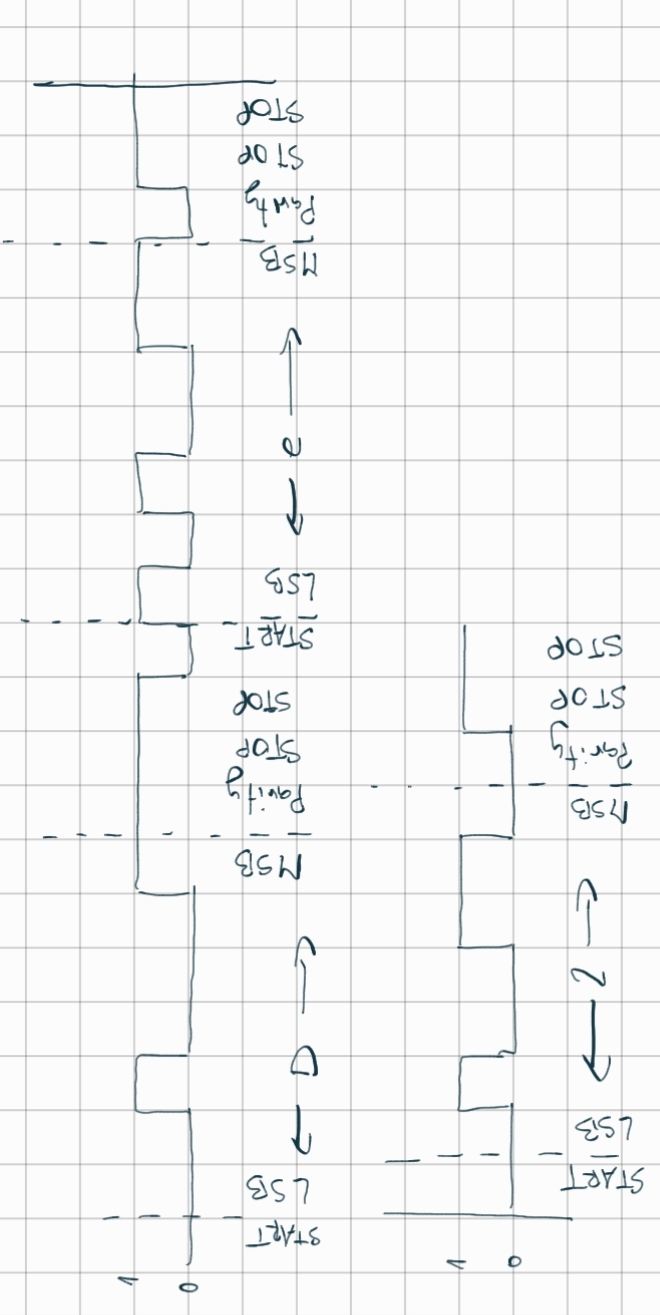 1
0
START LSB ← D → MSB Parity STOP STOP START LSB ← e → MSB Parity STOP STOP
1
0
START LSB ← 2 → MSB Parity STOP STOP